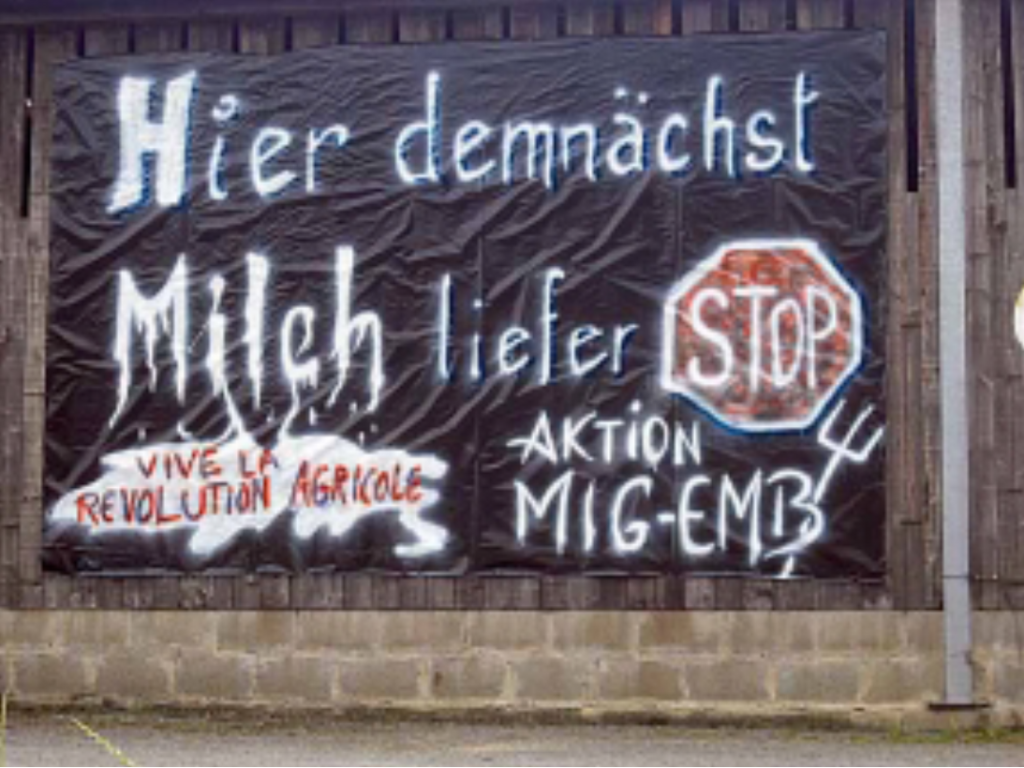 Hier demnächst
Milch liefer STOP
AKTION
MIG-EMB
VIVE LA
REVOLUTION AGRICOLE